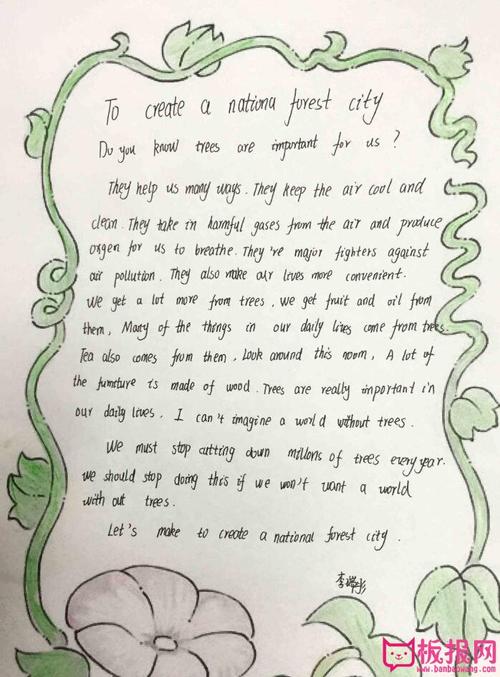 To create a nationa forest city
Do you know trees are important for us ?
They help us many ways. They keep the air cool and
clean. They take in harmful gases from the air and produce
oxgen for us to breathe. They're major fighters against
air pollution. They also make our lives more convenient.
We get a lot more from trees, we get fruit and oil from
them, Many of the things in our daily lives come from trees.
Tea also comes from them, Look around this room, A lot of
the furniture is made of wood. Trees are really important in
our daily lives. I can't imagine a world without trees.
We must stop cutting down millons of trees every year.
we should stop doing this if we won't want a world
with out trees.
Let's make to create a national forest city.
李
板报网
www.banbaowang.com